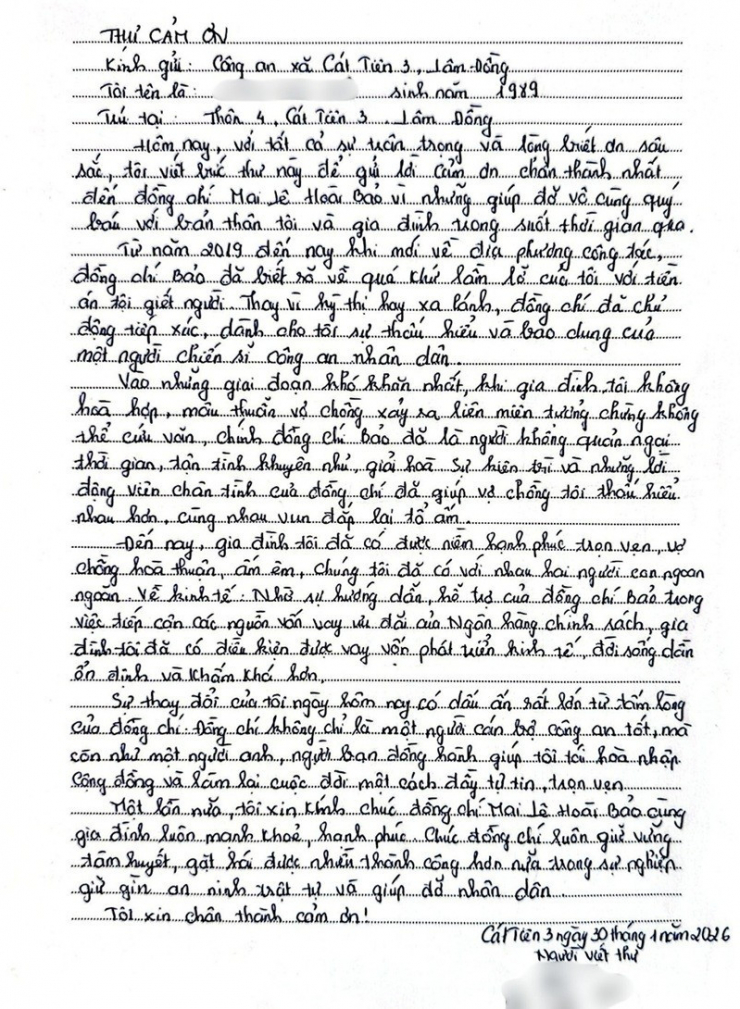 THƯ CẢM ƠN
Kính gửi: Công an xã Cát Tiên 3, Lâm Đồng
Tôi tên là: sinh năm 1989
Trú tại: Thôn 4, Cát Tiên 3, Lâm Đồng
Hôm nay, với tất cả sự trân trọng và lòng biết ơn sâu
sắc, tôi viết bức thư này để gửi lời cảm ơn chân thành nhất
đến đồng chí Mai Lê Hoài Bảo vì những giúp đỡ vô cùng quý
báu với bản thân tôi và gia đình trong suốt thời gian qua.
Từ năm 2019 đến nay khi mới về địa phương công tác,
đồng chí Bảo đã biết rõ về quá khứ lầm lỡ của tôi với tiền
án tội giết người. Thay vì kỳ thị hay xa lánh, đồng chí đã chủ
động tiếp xúc, dành cho tôi sự thấu hiểu và bao dung của
một người chiến sĩ công an nhân dân.
Vào những giai đoạn khó khăn nhất, khi gia đình tôi không
hoà hợp, mâu thuẫn vợ chồng xảy ra liên miên tưởng chừng không
thể cứu vãn, chính đồng chí Bảo đã là người không quản ngại
thời gian, tận tình khuyên nhủ, giải hoà. Sự kiên trì và những lời
động viên chân tình của đồng chí đã giúp vợ chồng tôi thấu hiểu
nhau hơn, cùng nhau vun đắp lại tổ ấm.
Đến nay, gia đình tôi đã có được niềm hạnh phúc trọn vẹn, vợ
chồng hoà thuận, ấm êm, chúng tôi đã có với nhau hai người con ngoan
ngoãn. Về kinh tế: Nhờ sự hướng dẫn, hỗ trợ của đồng chí Bảo trong
việc tiếp cận các nguồn vốn vay ưu đãi của Ngân hàng chính sách, gia
đình tôi đã có điều kiện được vay vốn phát triển kinh tế, đời sống dần
ổn định và khấm khá hơn.
Sự thay đổi của tôi ngày hôm nay có dấu ấn rất lớn từ tấm lòng
của đồng chí. Đồng chí không chỉ là một người cán bộ công an tốt, mà
còn như một người anh, người bạn đồng hành giúp tôi tái hoà nhập
cộng đồng và làm lại cuộc đời một cách đầy tự tin, trọn vẹn
Một lần nữa, tôi xin kính chúc đồng chí Mai Lê Hoài Bảo cùng
gia đình luôn mạnh khoẻ, hạnh phúc. Chúc đồng chí luôn giữ vững
tâm huyết, gặt hái được nhiều thành công hơn nữa trong sự nghiệp
giữ gìn an ninh trật tự và giúp đỡ nhân dân.
Tôi xin chân thành cảm ơn!
Cát Tiên 3 ngày 30 tháng 1 năm 2026
Người viết thư